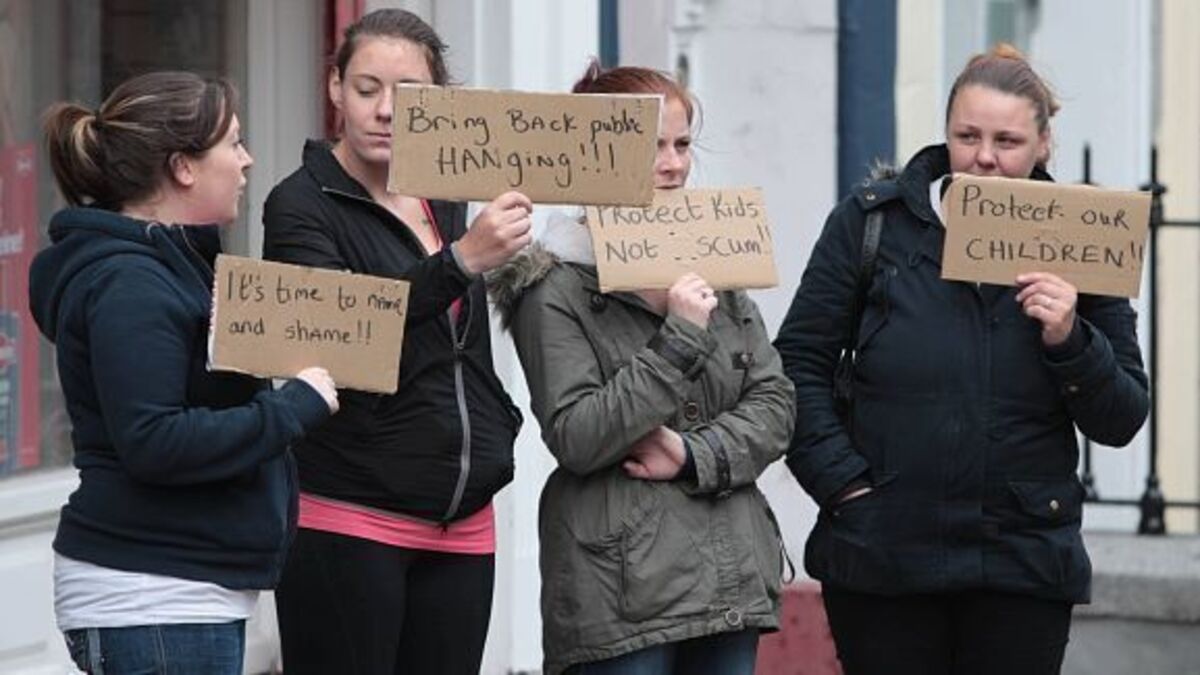 It's time to name
and shame!!
Bring BACK public
HANging!!!
Protect Kids
Not .. scum!!
Protect our
CHILDREN!!